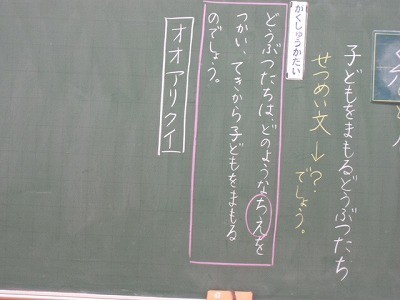 子どもをまもるどうぶつたち
せつめい文→?でしょう。
がくしゅうかだい
どうぶつたちは、どのようなちえを
つかい、てきから子どもをまもる
のでしょう。
オオアリクイ